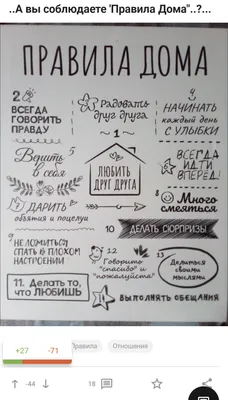 ..А вы соблюдаете 'Правила Дома"..?...
ПРАВИЛА ДОМА
2
ВСЕГДА
ГОВОРИТЬ
ПРАВДУ
3
Радовать
друг друга
4
НАЧИНАТЬ
каждый день
С УЛЫБКИ
1
ЛЮБИТЬ
ДРУГ ДРУГА
Верить 5
в себя
ВСЕГДА
ИДТИ
ВПЕРЁД!
ДАРИТЬ
объятия и поцелуи
8 Много
смеяться
9
НЕ ЛОЖИТЬСЯ
СПАТЬ В ПЛОХОМ
НАСТРОЕНИИ
10 ДЕЛАТЬ СЮРПРИЗЫ
11. Делать то,
что ЛЮБИШЬ
12
Говорить
"спасибо" и
"пожалуйста"
13
Делиться
своими
мыслями
14 ВЫПОЛНЯТЬ ОБЕЩАНИЯ
+27 -71
Правила
Отношения
-44
18